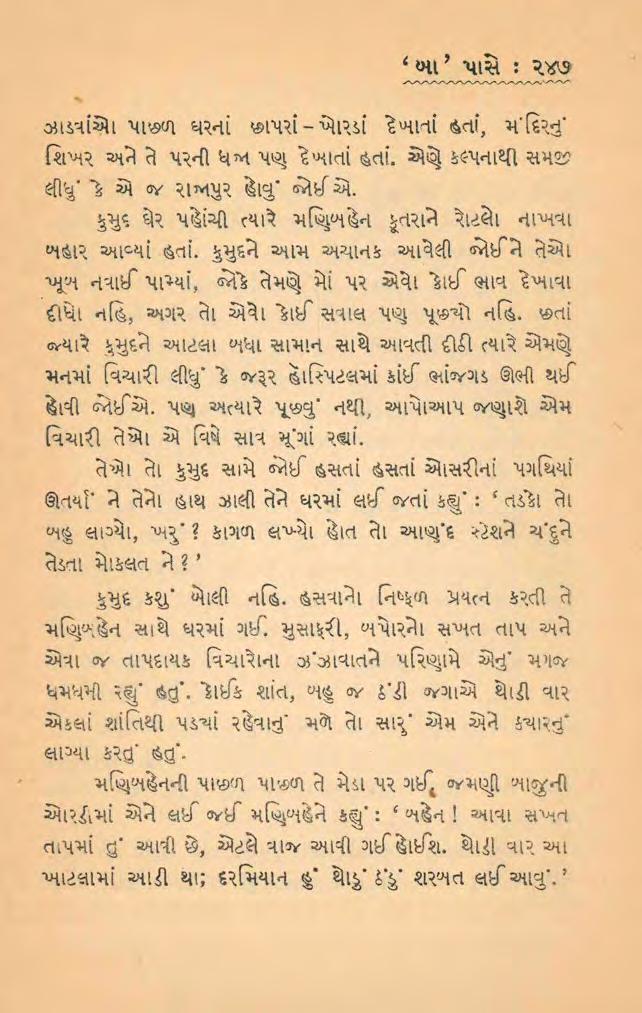 ‘ બા ’ પાસે : ૨૪૭
ઝાડવાંઓ પાછળ ઘરનાં છાપરાં – ખોરડાં દેખાતાં હતાં, મંદિરનું
શિખર અને તે પરની ધજા પણ દેખાતાં હતાં. એણે કલ્પનાથી સમજી
લીધું કે એ જ રાજાપુર હોવું જોઈએ.
કુમુદ ઘેર પહોંચી ત્યારે મણિબહેન કૂતરાને રોટલો નાખવા
બહાર આવ્યાં હતાં. કુમુદને આમ અચાનક આવેલી જોઈને તેઓ
ખૂબ નવાઈ પામ્યાં, જોકે તેમણે મોં પર એવો કોઈ ભાવ દેખાવા
દીધો નહિ, અગર તો એવો કોઈ સવાલ પણ પૂછ્યો નહિ. છતાં
જ્યારે કુમુદને આટલા બધા સામાન સાથે આવતી દીઠી ત્યારે એમણે
મનમાં વિચારી લીધું કે જરૂર હૉસ્પિટલમાં કાંઈ ભાંજગડ ઊભી થઈ
હોવી જોઈએ. પણ અત્યારે પૂછવું નથી, આપોઆપ જણાશે એમ
વિચારી તેઓ એ વિષે સાવ મૂંગાં રહ્યાં.
તેઓ તો કુમુદ સામે જોઈ હસતાં હસતાં ઓસરીનાં પગથિયાં
ઊતર્યાં ને તેનો હાથ ઝાલી તેને ઘરમાં લઈ જતાં કહ્યું : ‘ તડકો તો
બહુ લાગ્યો, ખરું ? કાગળ લખ્યો હોત તો આણંદ સ્ટેશને ચંદુને
તેડતા મોકલત ને ? ’
કુમુદ કશું બોલી નહિ. હસવાનો નિષ્ફળ પ્રયત્ન કરતી તે
મણિબહેન સાથે ઘરમાં ગઈ. મુસાફરી, બપોરનો સખત તાપ અને
એવા જ તાપદાયક વિચારોના ઝંઝાવાતને પરિણામે એનું મગજ
ધમધમી રહ્યું હતું. કોઈક શાંત, બહુ જ ઠંડી જગાએ થોડી વાર
એકલાં શાંતિથી પડ્યાં રહેવાનું મળે તો સારું એમ એને ક્યારનું
લાગ્યા કરતું હતું.
મણિબહેનની પાછળ પાછળ તે મેડા પર ગઈ, જમણી બાજુની
ઓરડીમાં એને લઈ જઈ મણિબહેને કહ્યું : ‘ બહેન ! આવા સખત
તાપમાં તું આવી છે, એટલે વાજ આવી ગઈ હોઈશ. થોડી વાર આ
ખાટલામાં આડી થા; દરમિયાન હું થોડું ઠંડું શરબત લઈ આવું. ’